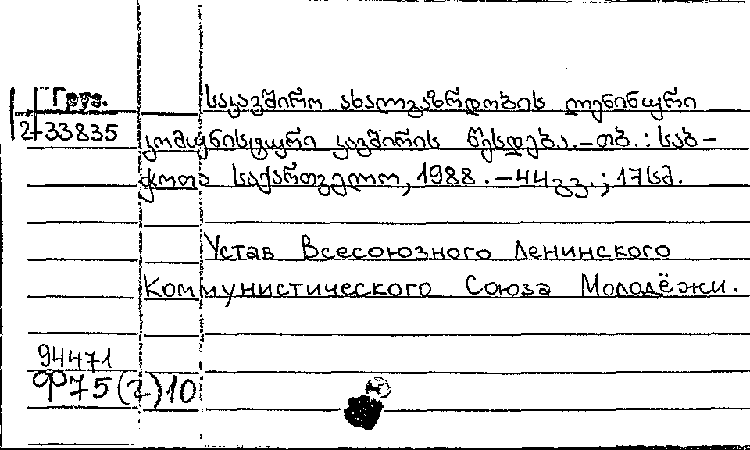 Груз.
2-33835
საკავშირო ახალგაზრდობის ლენინური
კომუნისტური კავშირის წესდება.-თბ.: საბ-
ჭოთა საქართველო, 1988.-44გვ.; 17სმ.
Устав Всесоюзного Ленинского
Коммунистического Союза Молодёжи.
94471
Ф75(2)10